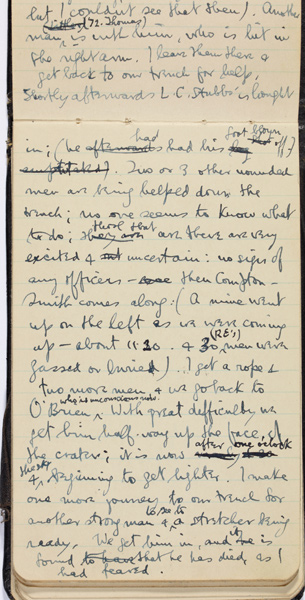 but I couldn't see that then). Another
man, (72 Thomas) is with him, who is hit in
the right arm. I leave them there &
get back to our trench for help.
Shortly afterwards L.C. Stubbs is brought
in: (he afterwards had had his foot blown off)
amputated). Two or 3 other wounded
men are being helped down the
trench; no one seems to know what
to do; those that are there are very
excited & uncertain: no sign of
any officers – then Compton-
Smith comes along: (A mine went
up on the left as we were coming
up – about 11.30. & 30 (RE's) men were
gassed or buried)... I get a rope &
two more men, & we go back to
O'Brien, who is unconscious now. With great difficulty we
get him half-way up the face of
the crater; it is now after one o'clock
& the sky beginning to get lighter. I make
one more journey to our trench for
another strong man & to see to a stretcher being
ready. We get him in, and it is
found that he has died, as I
had feared.